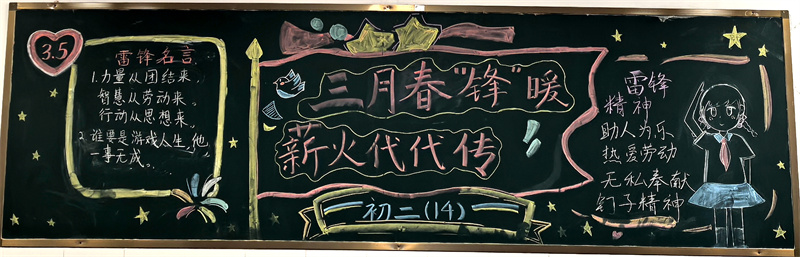 3.5
雷锋名言
1.力量从团结来，
智慧从劳动来，
行动从思想来。
2.谁要是游戏人生，他
一事无成。
三月春“锋”暖
薪火代代传
初二(14)
雷锋
精神
助人为乐
热爱劳动
无私奉献
钉子精神